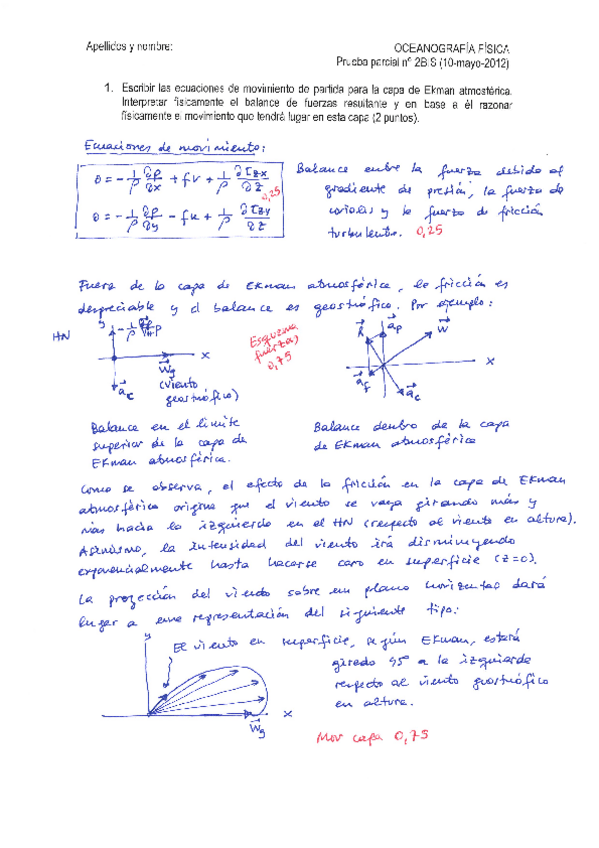 Apellidos y nombre:
OCEANOGRAFÍA FÍSICA
Prueba parcial nº 2BIS (10-mayo-2012)
1. Escribir las ecuaciones de movimiento de partida para la capa de Ekman atmosférica.
Interpretar físicamente el balance de fuerzas resultante y en base a él razonar
físicamente el movimiento que tendrá lugar en esta capa (2 puntos).
Ecuaciones de movimiento:
0 = - 1/ρ ∂p/∂x + fv + 1/ρ ∂τzx/∂z
0,25
0 = - 1/ρ ∂p/∂y - fu + 1/ρ ∂τzy/∂z
Balance entre la fuerza debido al
gradiente de presión, la fuerza de
coriolis y la fuerza de fricción
turbulenta. 0,25
Fuera de la capa de Ekman atmosférica, la fricción es
despreciable y el balance es geostrófico. Por ejemplo:
HN
y
-1/ρ ∇p
x
Wg
(viento
geostrófico)
ac
Esquema
fuerzas)
0,75
R
ap
W
x
af
ac
Balance en el límite
superior de la capa de
Ekman atmosférica.
Balance dentro de la capa
de Ekman atmosférica
Como se observa, el efecto de la fricción en la capa de Ekman
atmosférica origina que el viento se vaya girando más y
más hacia la izquierda en el HN (respecto al viento en altura).
Asimismo, la intensidad del viento irá disminuyendo
exponencialmente hasta hacerse cero en superficie (z=0).
La proyección del viento sobre un plano horizontal dará
lugar a una representación del siguiente tipo:
y
El viento en superficie, según Ekman, estará
girado 45° a la izquierda
respecto al viento geostrófico
en altura.
x
Wg
Mov capa 0,75